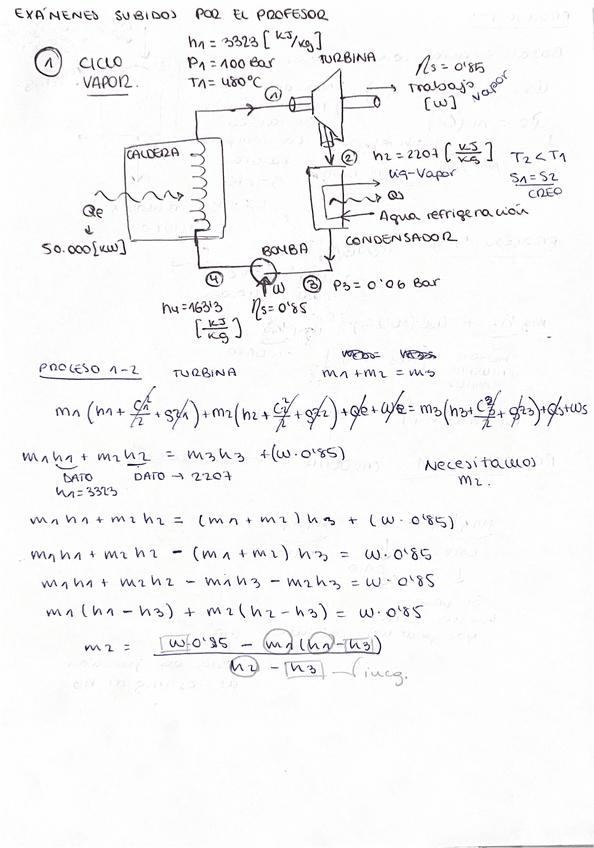 EXÁNENES SUBIDOS POR EL PROFESOR
1 CICLO VAPOR.
h1 = 3323 [KJ/kg]
P1 = 100 Bar
T1 = 480°C
TURBINA
ηs = 0'85
Trabajo [W]
vapor
1
CALDERA
2 h2 = 2207 [KJ/Kg]
T2 < T1
S1 = S2
CREO
Liq-Vapor
Qs
Agua refrigeración
Qe
50.000 [KW]
CONDENSADOR
BOMBA
4
W
3 P3 = 0'06 Bar
h4 = 163'3 [KJ/Kg]
ηs = 0'85
PROCESO 1-2 TURBINA
m1 + m2 = m3
m1 (h1 + c1²/2 + gz1) + m2 (h2 + c2²/2 + gz2) + Qe + We = m3 (h3 + c3²/2 + gz3) + Qs + Ws
m1h1 + m2h2 = m3h3 + (W · 0'85)
DATO DATO → 2207
h1 = 3323
Necesitamos m2.
m1h1 + m2h2 = (m1 + m2) h3 + (W · 0'85)
m1h1 + m2h2 - (m1 + m2) h3 = W · 0'85
m1h1 + m2h2 - m1h3 - m2h3 = W · 0'85
m1 (h1 - h3) + m2 (h2 - h3) = W · 0'85
m2 = W 0'85 - m1 (h1 - h3)
h2 - h3
incg.